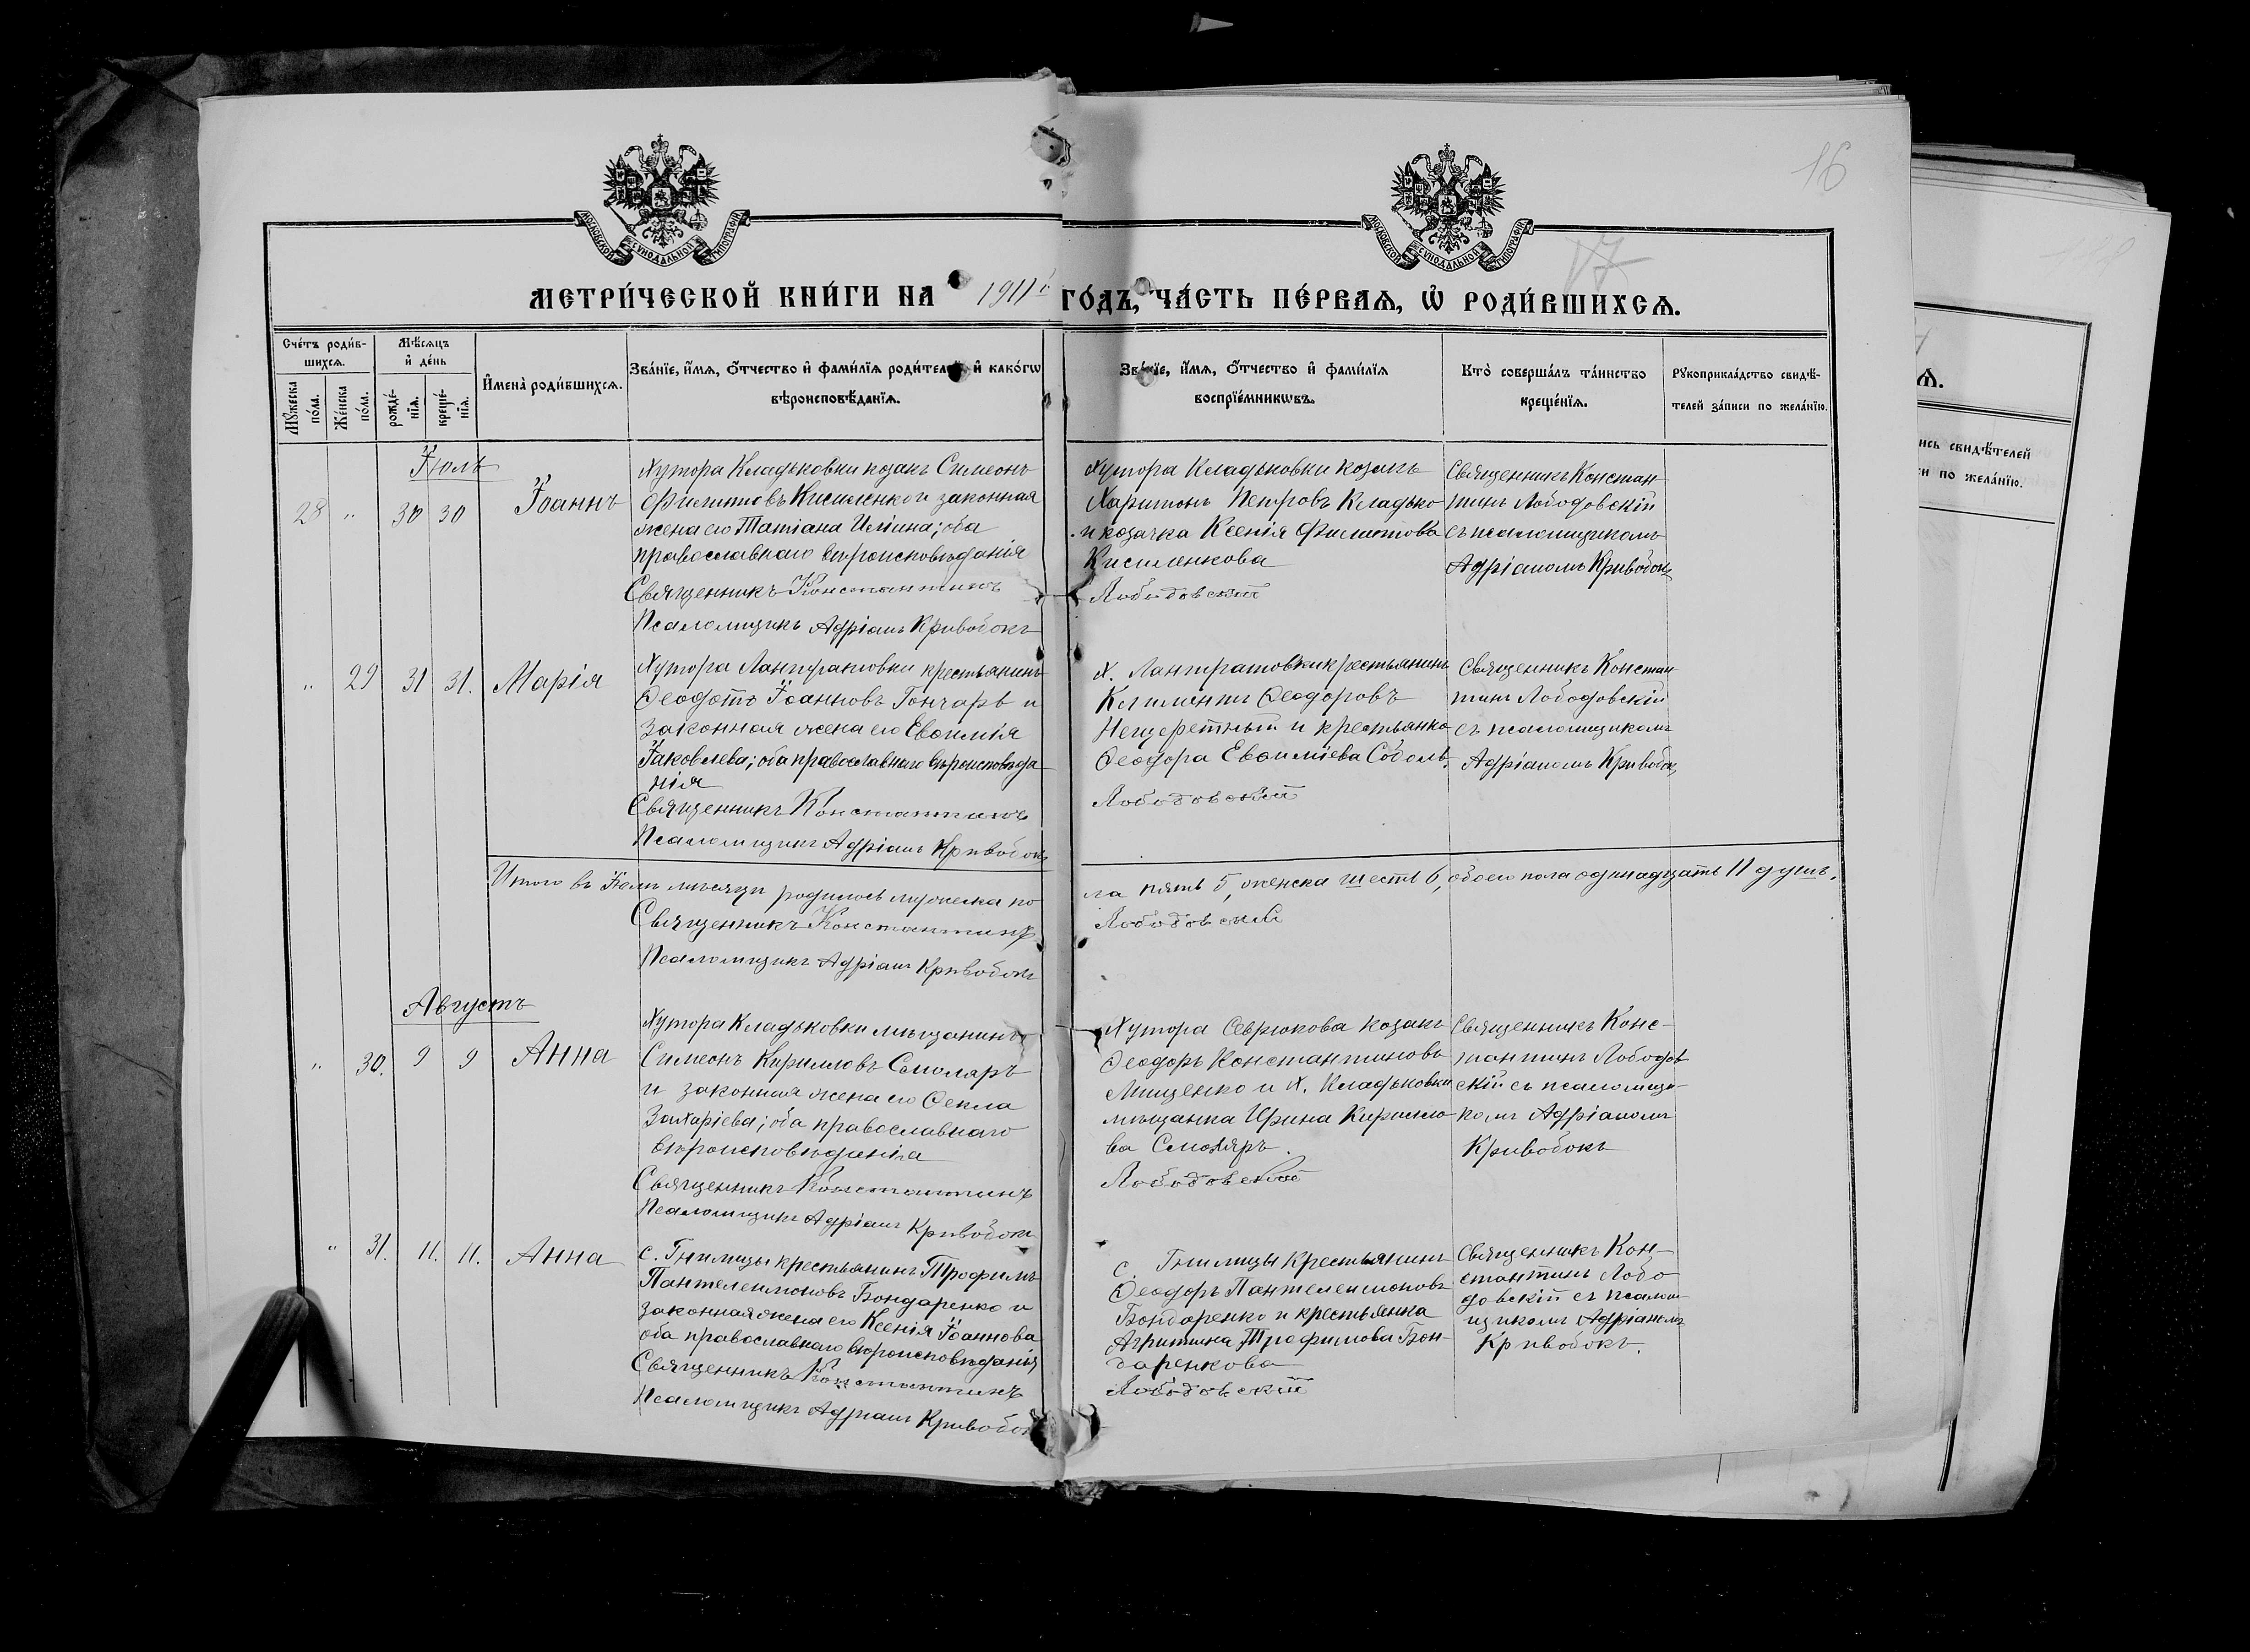 16
17
МОСКОВСКОЙ СѴНОДАЛЬНОЙ ТИПОГРАФІИ
МОСКОВСКОЙ СѴНОДАЛЬНОЙ ТИПОГРАФІИ
МЕТРИ́ЧЕСКОЙ КНИ́ГИ НА 1911й ГО́ДЪ, ЧА́СТЬ ПЕ́РВАѦ, Ѡ҆ РОДИ́ВШИХСѦ.
Сче́тъ роди́в-
шихсѧ.
Мꙋжеска по́ла.
Же́нска по́ла.
Мѣ́сѧцъ
и҆ де́нь
рожде́-
нїѧ.
креще́-
нїѧ.
И҆мена̀ роди́вшихсѧ.
Зва́нїе, и҆́мѧ, ѻ҆́тчество и҆ фами́лїѧ роди́телей, и҆ како́гѡ
вѣроисповѣ́данїѧ.
Зва́нїе, и҆́мѧ, ѻ҆́тчество и҆ фами́лїѧ
воспрїе́мникѡвъ.
Кто̀ соверша́лъ та́инство
креще́нїѧ.
Рꙋкоприкла́дство свидѣ́-
телей за́писи по жела́нїю.
Іюль
28 " 30 30 Іоаннъ
Хутора Кладьковки козакъ Симеонъ
Филиповъ Кисиленко и законная
жена его Татіана Иліина; оба
православнаго вѣроисповѣданія
Священникъ Константинъ
Псаломщикъ Адріанъ Кривобокъ
Хутора Кладьковки козакъ
Харитонъ Петровъ Кладько
и козачка Ксенія Филипова
Кисиленкова
Лободовскій
Священникъ Констан
тинъ Лободовскій
съ псаломщикомъ
Адріаномъ Кривобок
" 29 31 31. Марія
Хутора крестьянинъ
Ѳеодотъ Іоанновъ Гончаръ и
законная жена его Евѳимія
Іаковлева; оба православнаго вѣроисповѣда
нія
Священникъ Константинъ
Псаломщикъ Адріанъ Кривобокъ
Х. крестьянинъ
Климентъ Ѳеодоровъ
Нещеретный и крестьянка
Ѳеодора Евѳиміева Соболь.
Лободовскій
Священникъ Констан
тинъ Лободовскій
съ псаломщикомъ
Адріаномъ Кривобок
Итого въ Іюлѣ мѣсяцѣ родилось мужеска по
ла пять 5, женска шесть 6, обоего пола одинадцать 11 душъ.
Священникъ Константинъ
Лободовскій
Псаломщикъ Адріанъ Кривобокъ
Августъ
" 30. 9 9 Анна
Хутора Кладьковки мѣщанинъ
Симеонъ Кириловъ Смоляръ
и законная жена его Ѳекла
Захаріева; оба православнаго
вѣроисповѣданія
Священникъ Константинъ
Псаломщикъ Адріанъ Кривобокъ
Хутора Севрюкова козакъ
Ѳеодоръ Константиновъ
Мищенко и х. Кладьковки
мѣщанка Ирина Кирилло
ва Смоляръ.
Лободовскій
Священникъ Конс-
тантинъ Лободов
скій съ псаломщи-
комъ Адріаномъ
Кривобокъ
" 31. 11. 11. Анна
с. Гнилицы крестьянинъ Трофимъ
Пантелеимоновъ Бондаренко и
законная жена его Ксенія Іоаннова
оба православнаго вѣроисповѣданія
Священникъ Константинъ
Псаломщикъ Адріанъ Кривобок
с. Гнилицы крестьянинъ
Ѳеодоръ Пантелеимоновъ
Бондаренко и крестьянка
Агрипина Трофимова Бон-
даренкова
Лободовскій
Священникъ Кон-
стантинъ Лобо
довскій съ псалом
щикомъ Адріаномъ
Кривобокъ.
Ѧ.
ись свидѣ́телей
и по жела́нїю.